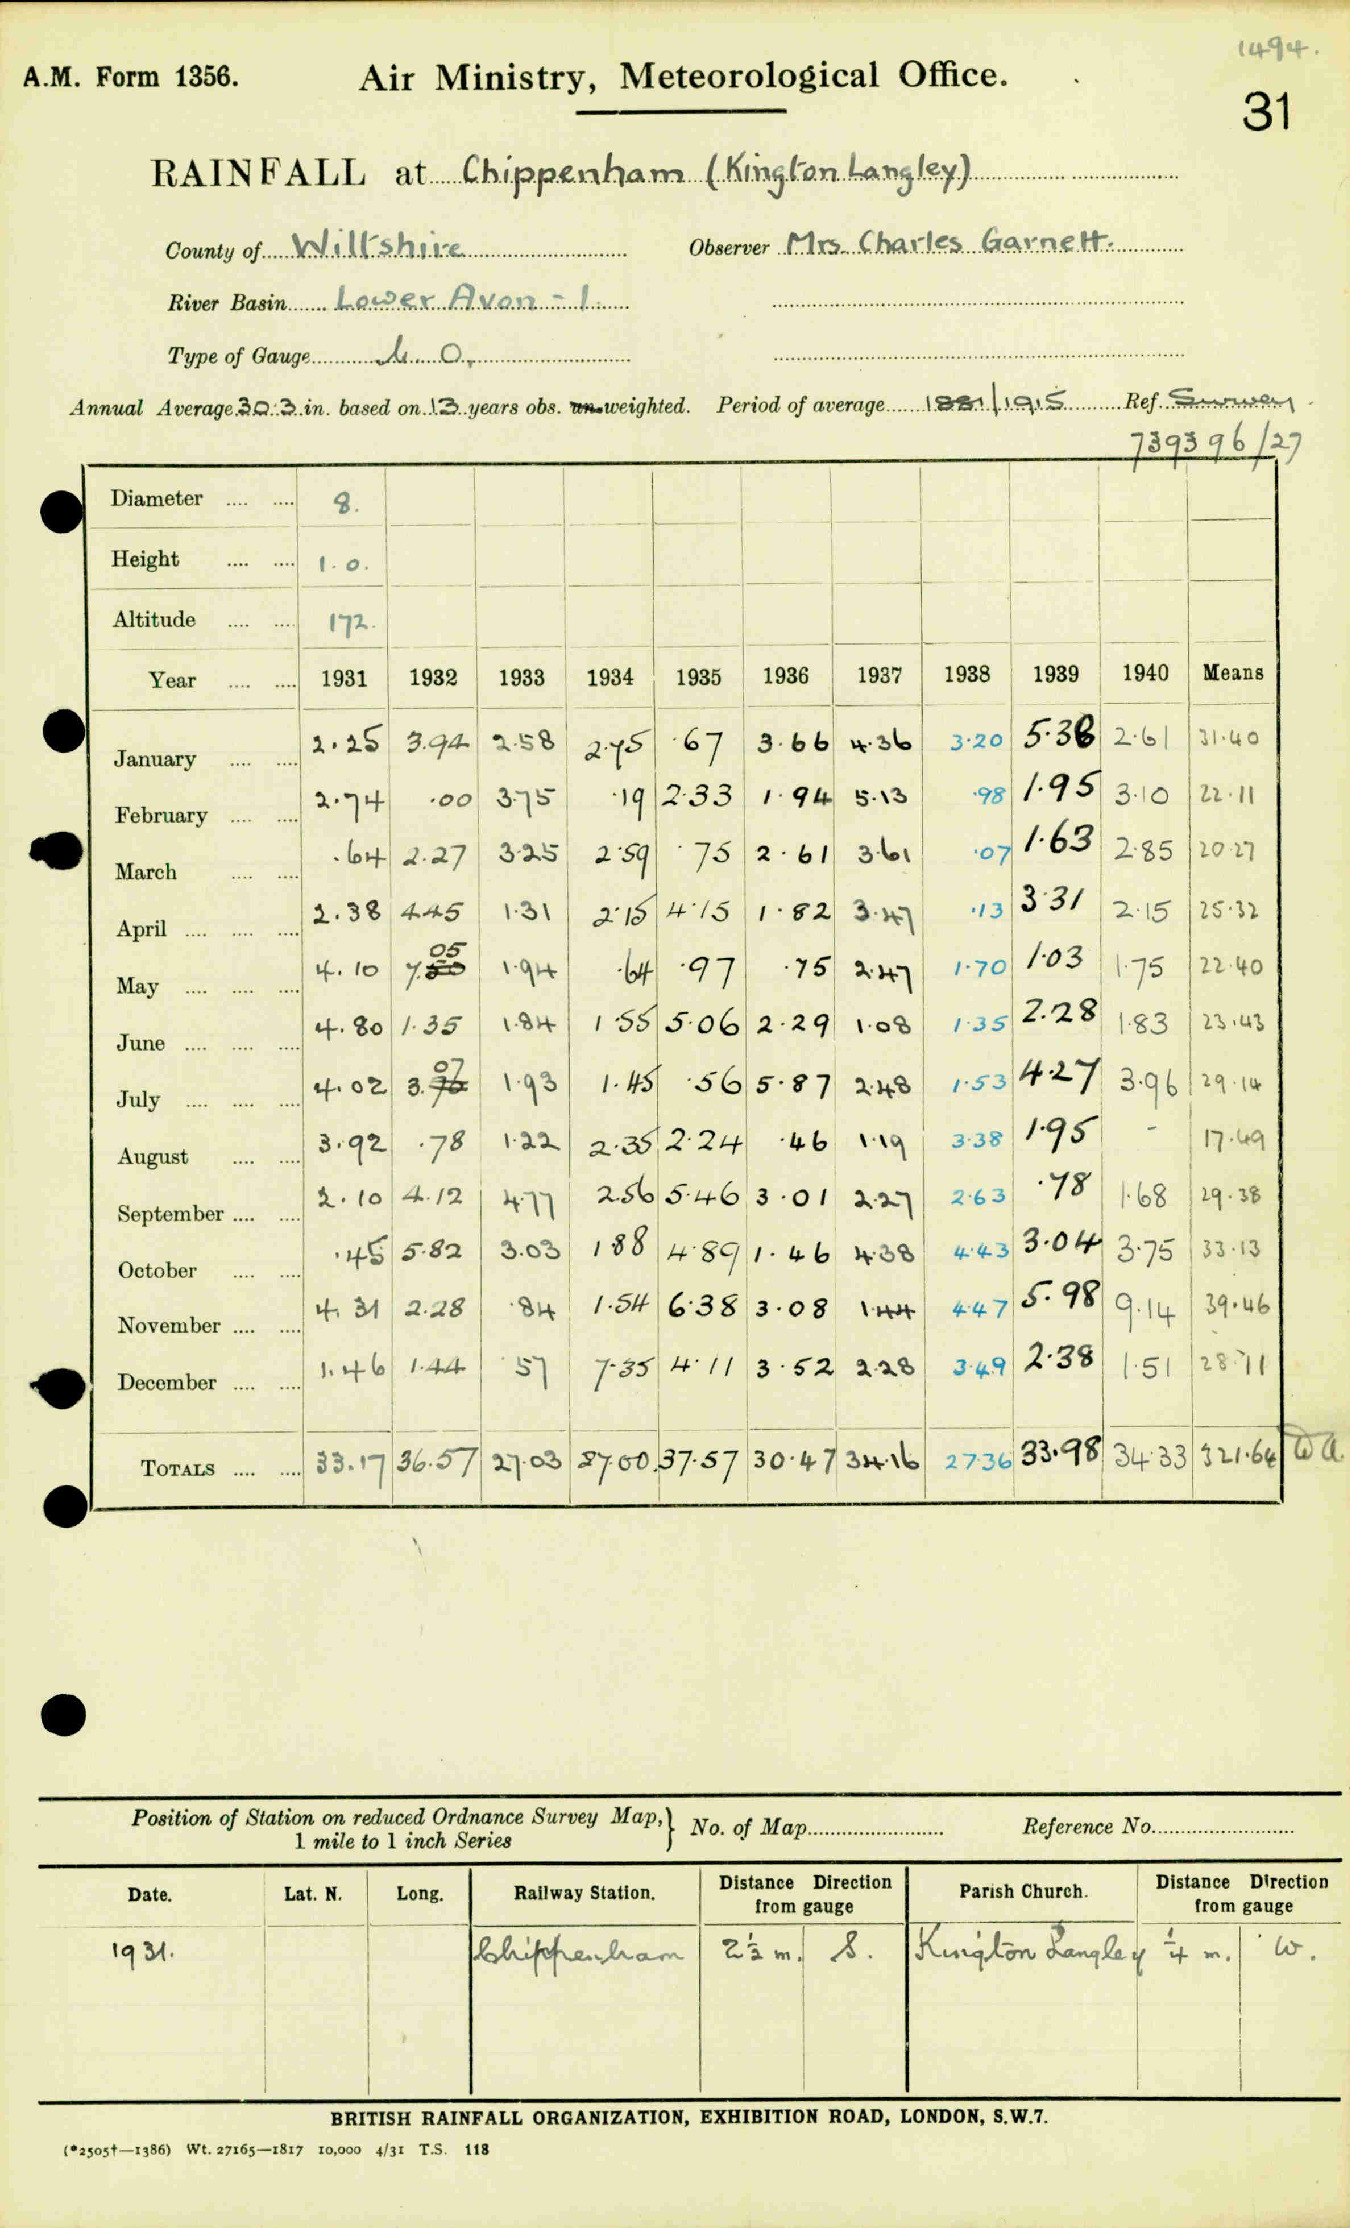 1494.
A.M. Form 1356. Air Ministry, Meteorological Office.
31
RAINFALL at Chippenham (Kington Langley)
County of Wiltshire Observer Mrs. Charles Garnett.
River Basin Lower Avon - 1.
Type of Gauge M. O.
Annual Average 30.3 in. based on 13 years obs. un-weighted. Period of average 1881/1915 Ref. Survey
739396/27
Diameter .... .... 8.
Height .... .... 1. 0.
Altitude .... .... 172.
Year .... .... 1931 1932 1933 1934 1935 1936 1937 1938 1939 1940 Means
January .... .... 2.25 3.94 2.58 2.75 .67 3.66 4.36 3.20 5.38 2.61 31.40
February .... .... 2.74 .00 3.75 .19 2.33 1.94 5.13 .98 1.95 3.10 22.11
March .... .... .64 2.27 3.25 2.59 .75 2.61 3.61 .07 1.63 2.85 20.27
April .... .... .... 2.38 4.45 1.31 2.15 4.15 1.82 3.47 .13 3.31 2.15 25.32
May .... .... .... 4.10 7.05 1.94 .64 .97 .75 2.47 1.70 1.03 1.75 22.40
June .... .... .... 4.80 1.35 1.84 1.55 5.06 2.29 1.08 1.35 2.28 1.83 23.43
July .... .... .... 4.02 3.07 1.93 1.45 .56 5.87 2.48 1.53 4.27 3.96 29.14
August .... .... 3.92 .78 1.22 2.35 2.24 .46 1.19 3.38 1.95 - 17.49
September .... .... 2.10 4.12 4.77 2.56 5.46 3.01 2.27 2.63 .78 1.68 29.38
October .... .... .45 5.82 3.03 1.88 4.89 1.46 4.38 4.43 3.04 3.75 33.13
November .... .... 4.31 2.28 .84 1.54 6.38 3.08 1.44 4.47 5.98 9.14 39.46
December .... .... 1.46 1.44 .57 7.35 4.11 3.52 2.28 3.49 2.38 1.51 28.11
TOTALS .... .... 33.17 36.57 27.03 27.00 37.57 30.47 34.16 27.36 33.98 34.33 321.64
Position of Station on reduced Ordnance Survey Map, } No. of Map Reference No.
1 mile to 1 inch Series
Date. Lat. N. Long. Railway Station. Distance Direction from gauge Parish Church. Distance Direction from gauge
1931. Chippenham 2½ m. S. Kington Langley ¼ m. W.
BRITISH RAINFALL ORGANIZATION, EXHIBITION ROAD, LONDON, S.W.7.
(*2505†—1386) Wt. 27165—1817 10,000 4/31 T.S. 118